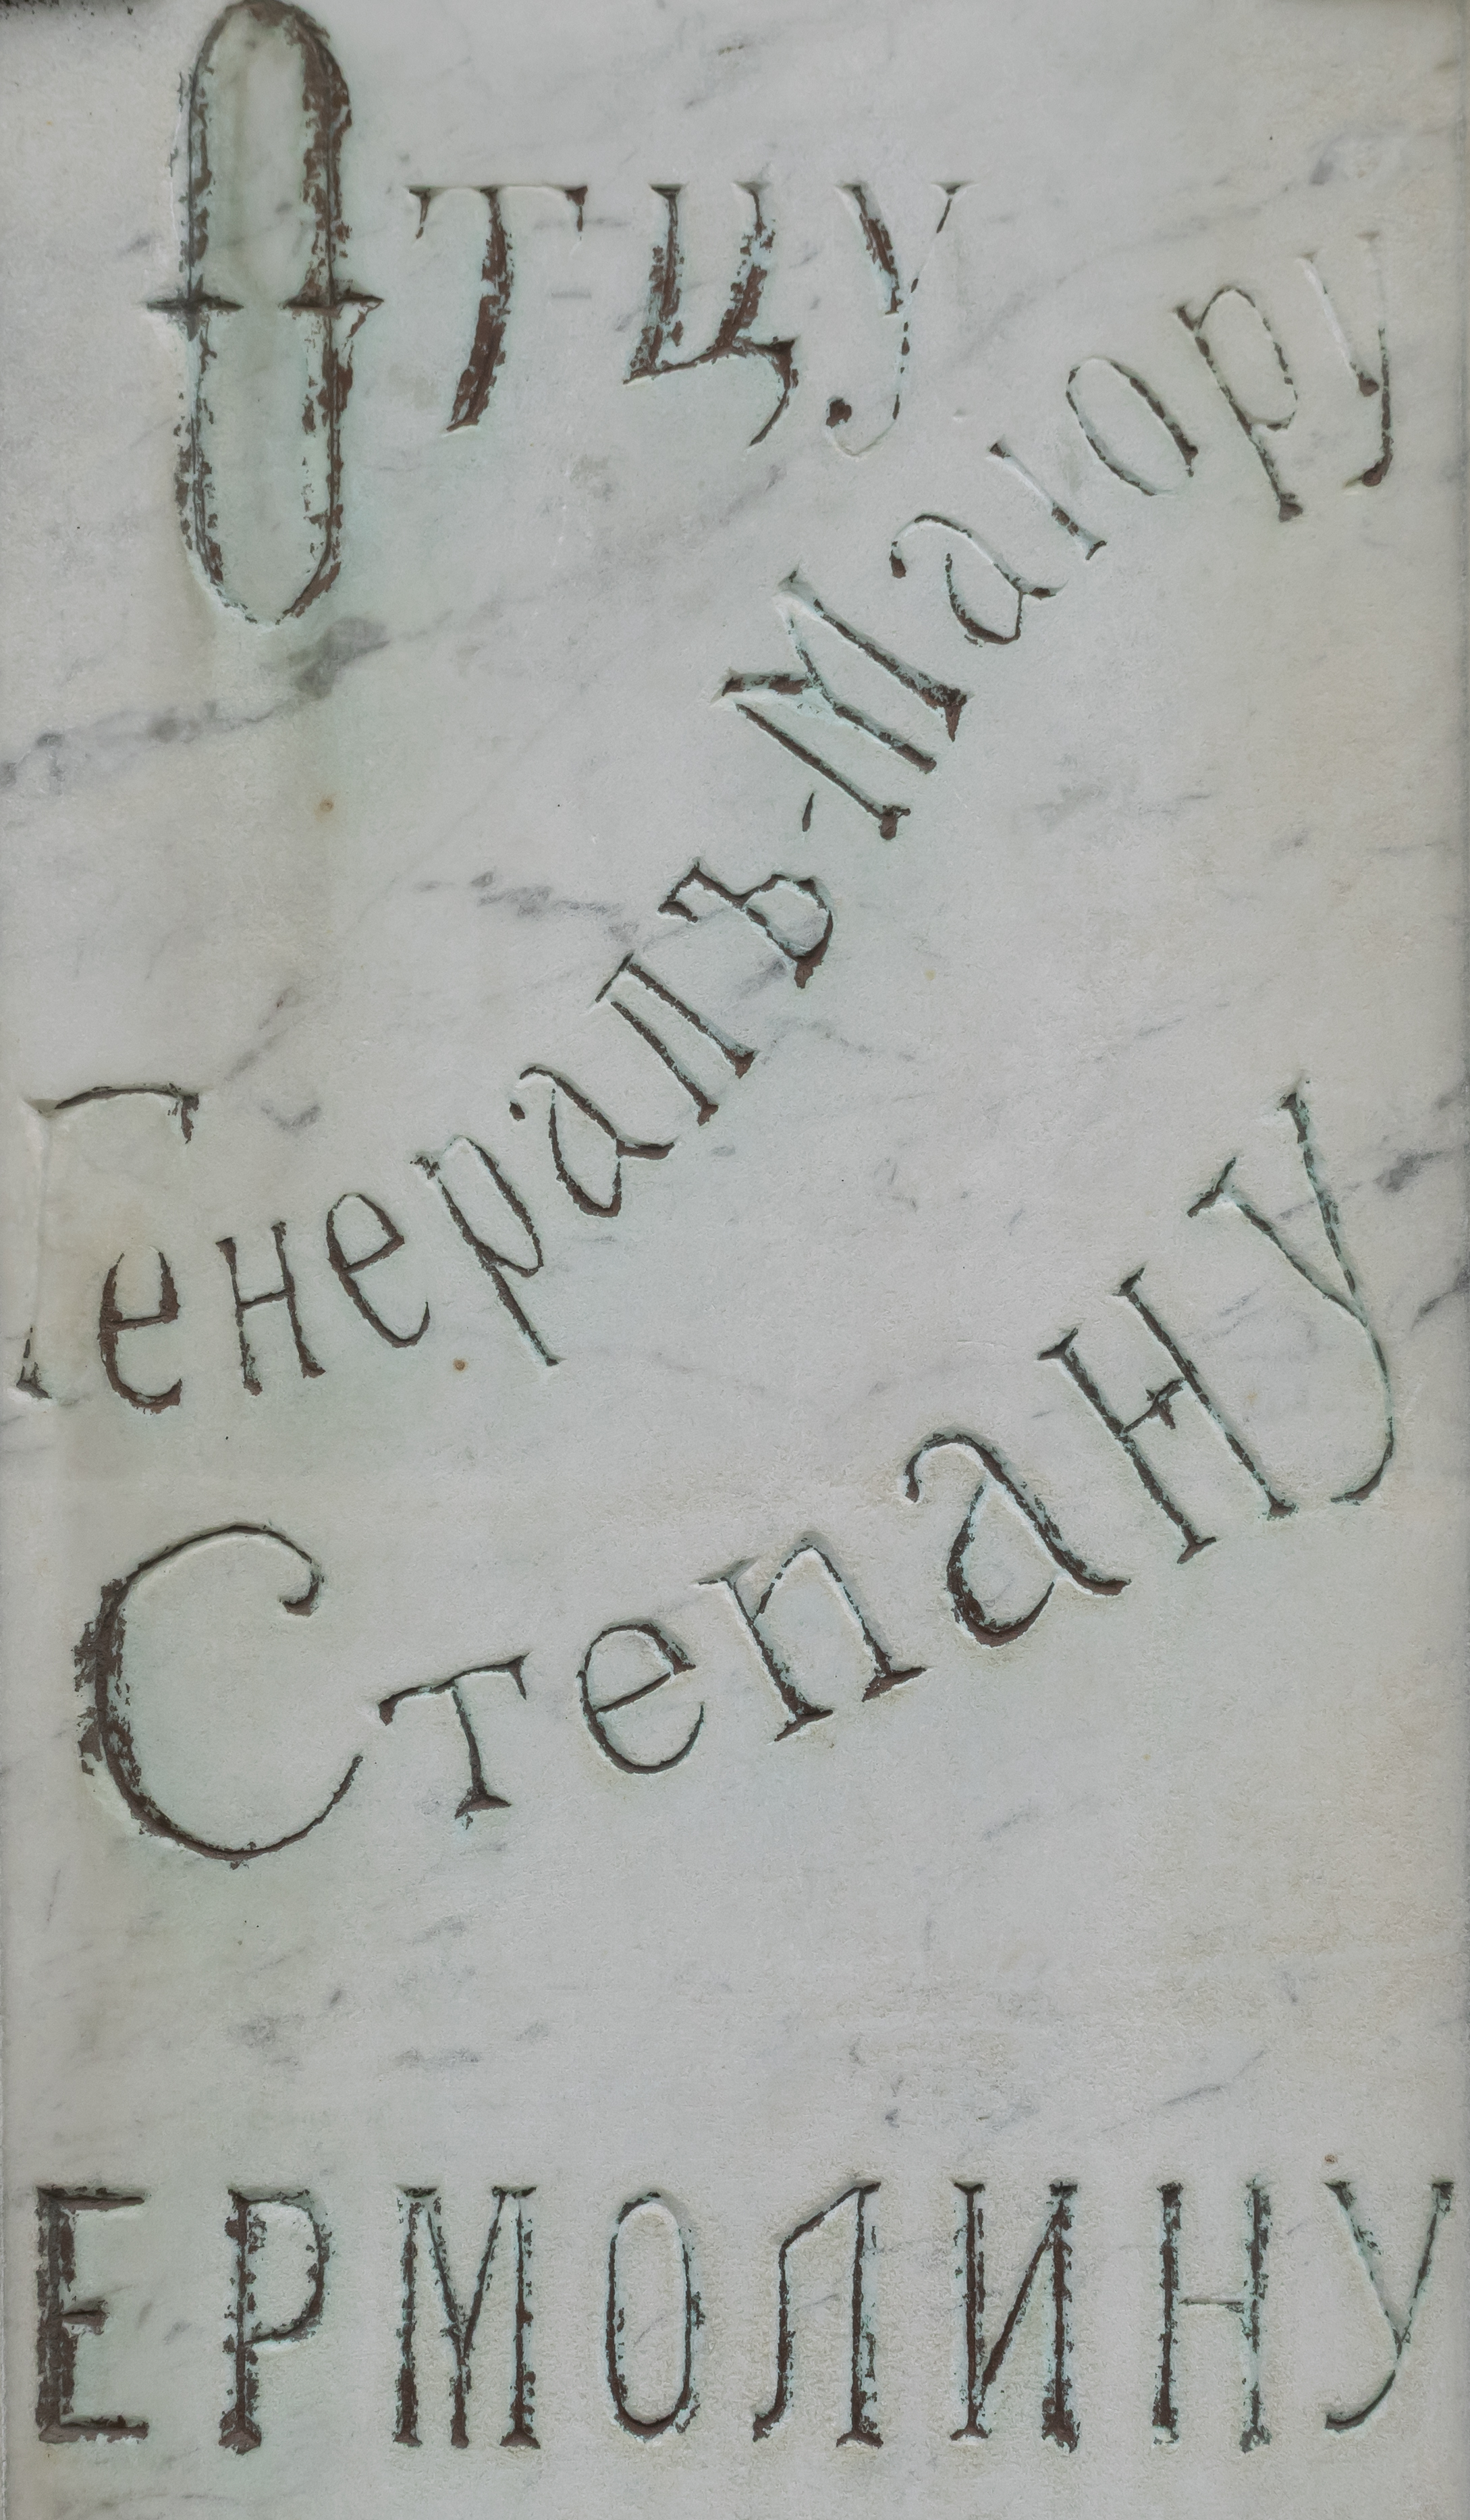 Отцу
Генералъ-Маіору
Степану
ЕРМОЛИНУ